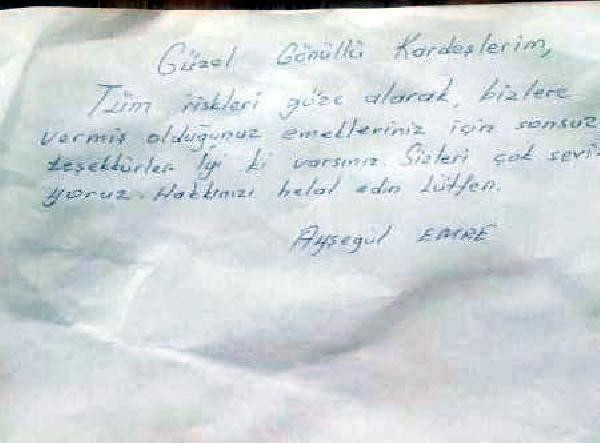 Güzel Gönüllü Kardeşlerim,
Tüm riskleri göze alarak, bizlere
vermiş olduğunuz emekleriniz için sonsuz
teşekkürler. İyi ki varsınız. Sizleri çok sevi-
yoruz. Hakkınızı helal edin lütfen.
Ayşegül EMRE